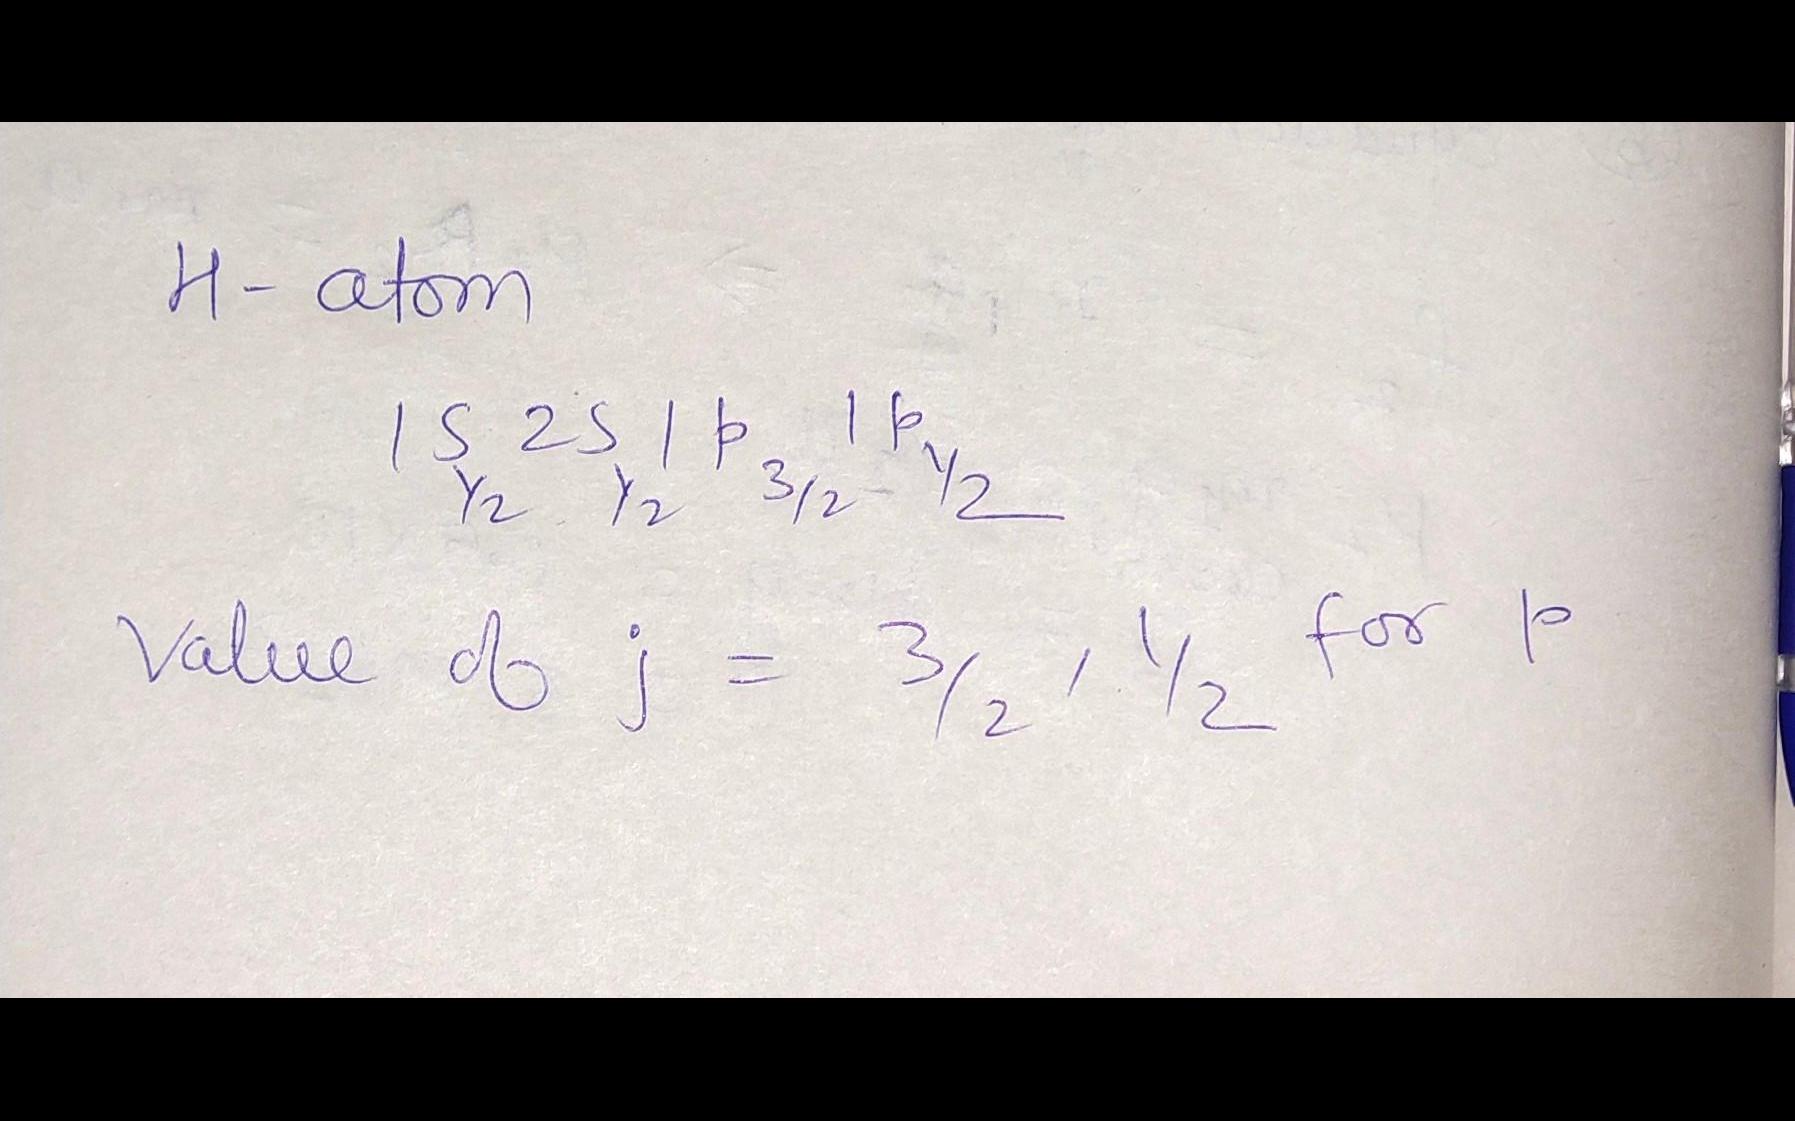 H- atom
1S1/2 2S1/2 1p3/2 1p1/2
Value of j = 3/2, 1/2 for p